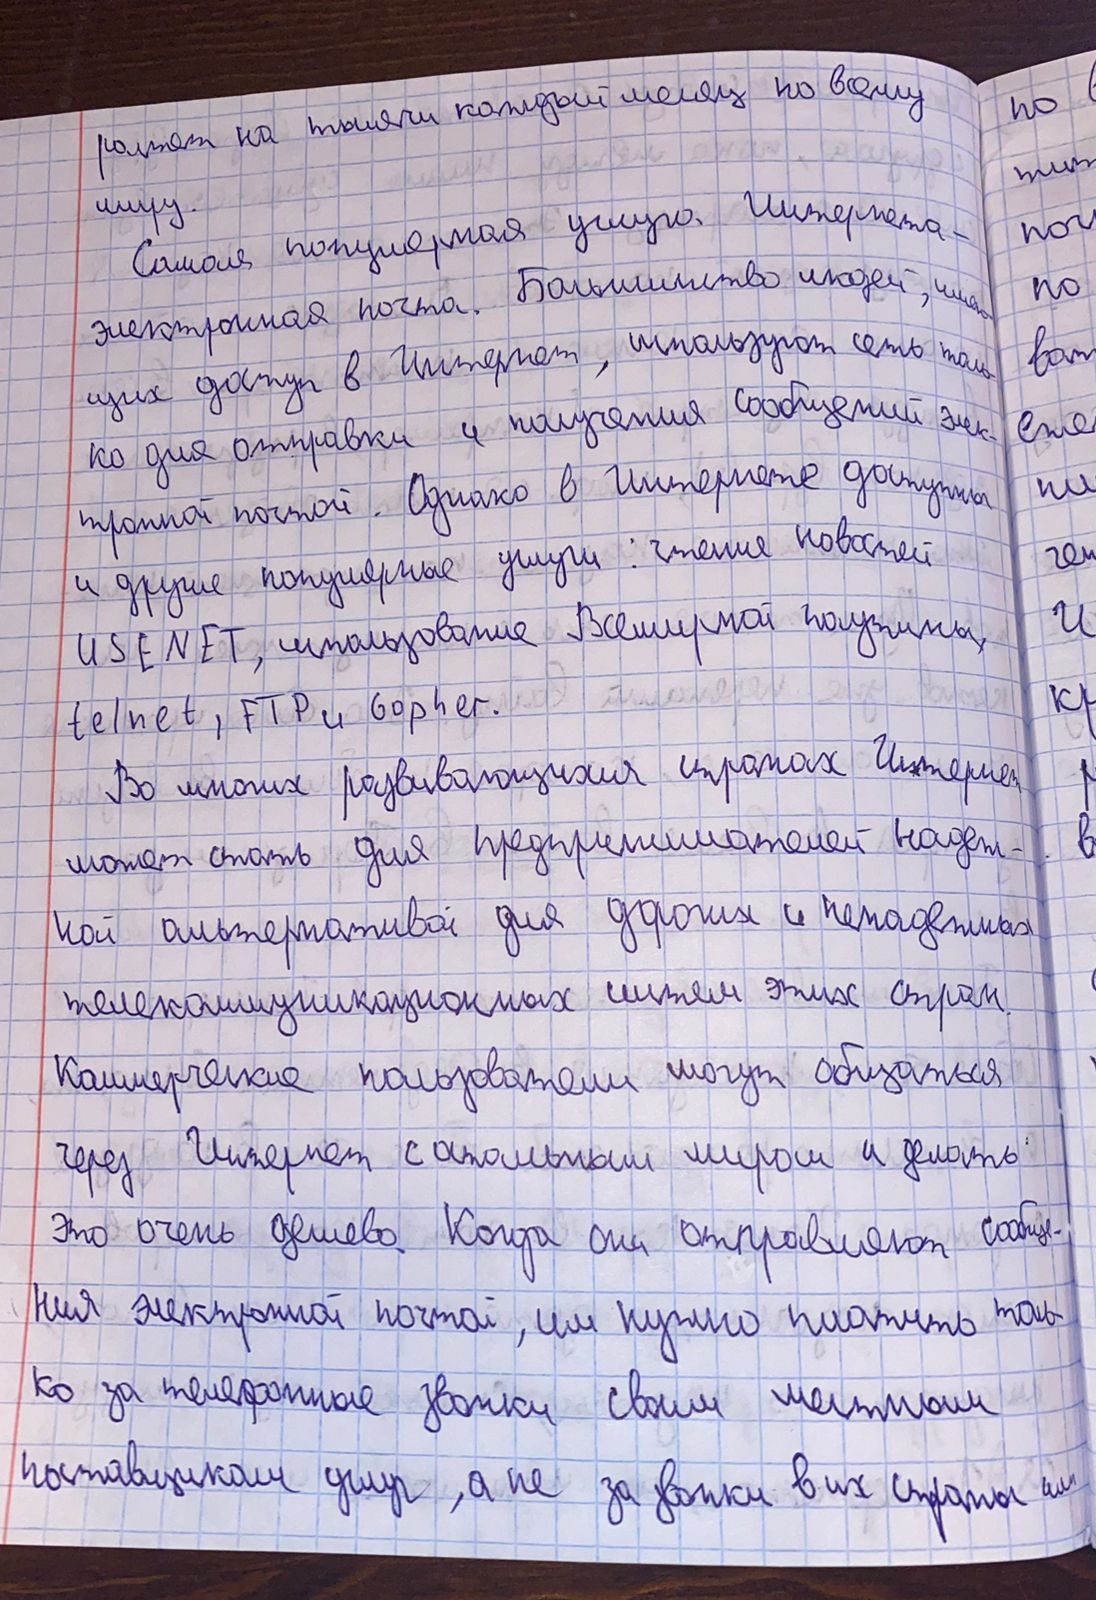 ролжет на тысячи каждый месяц по всему
миру.
Самая популярная услуга Интернета -
электронная почта. Большинство людей, имею-
щих доступ в Интернет, используют сеть толь-
ко для отправки и получения сообщений элек-
тронной почтой. Однако в Интернете доступны
и другие популярные услуги: чтение новостей
USENET, использование Всемирной паутины,
telnet, FTP и Gopher.
Во многих развивающихся странах Интернет
может стать для предпринимателей надеж-
ной альтернативой для дорогих и ненадежных
телекоммуникационных систем этих стран.
Коммерческие пользователи могут общаться
через Интернет с остальным миром и делать
это очень дешево. Когда они отправляют сообще-
ния электронной почтой, им нужно платить толь-
ко за телефонные звонки своим местным
поставщикам услуг, а не за звонки в их страны или
по
поч
по
ват